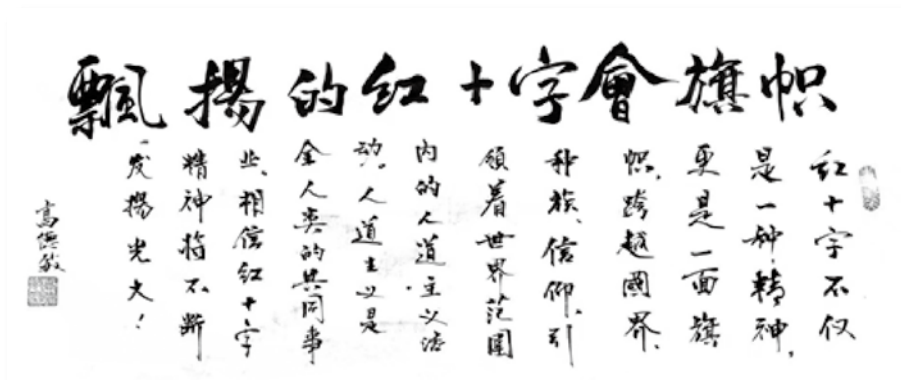 飄揚的红十字會旗帜
红十字不仅
是一种精神，
更是一面旗
帜，跨越國界、
种族、信仰，引
领着世界范围
内的人道主义活
动。人道主义是
全人类的共同事
业，相信红十字
精神将不断
发揚光大！
高德敏